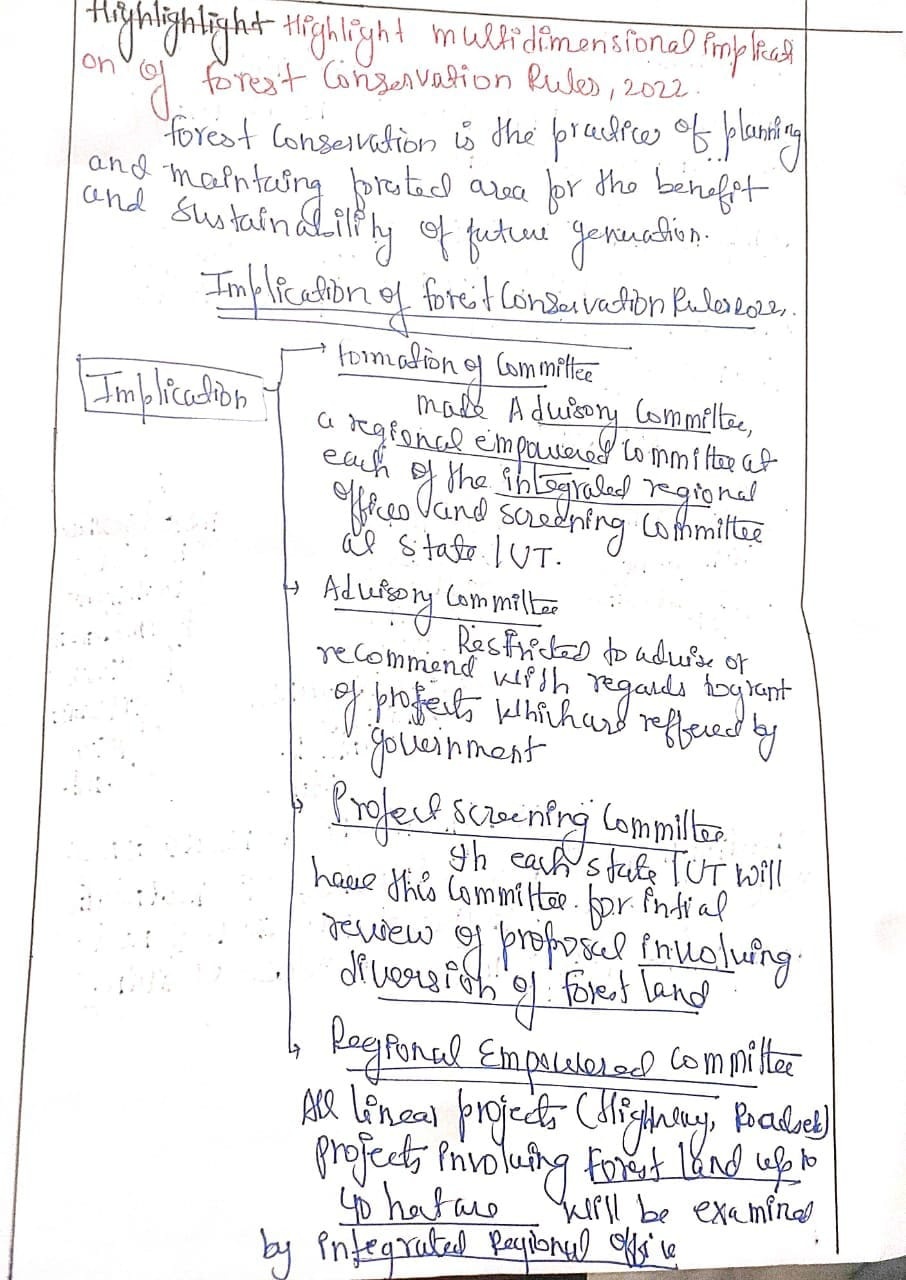 Highlighlight Highlight multidimensional implicati
on of forest Conservation Rules, 2022.
forest Conservation is the practices of planning
and maintaing forested area for the benefit
and sustainability of future genuation.
Implication of forest Conservation Rules 2022,.
formation of Committee
Implication
made Advisory Committee,
a regional empowered Committee at
each of the integraled regional
offices and screening Committee
at state / UT.
Advisory Committee
Restricted to advise or
recommend with regards to grant
of projects which are reffered by
government
Project screening Committee
In each state / UT will
have this Committee for intial
review of proposal involving
diversion of forest land
Regional Empowered committee
All linear projects (Highway, Roads etc)
projects involving forest land up to
40 hectare will be examined
by integrated Regional office